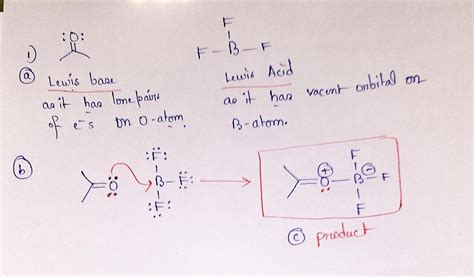 1) :O: F
F – B – F
(a) Lewis base Lewis Acid
as it has lone pairs as it has vacent orbital on
of e⁻s on O-atom. B-atom.
(b) :F:
=O B – F: → =O – B – F
:F: F F
⊕ ⊖
(c) product